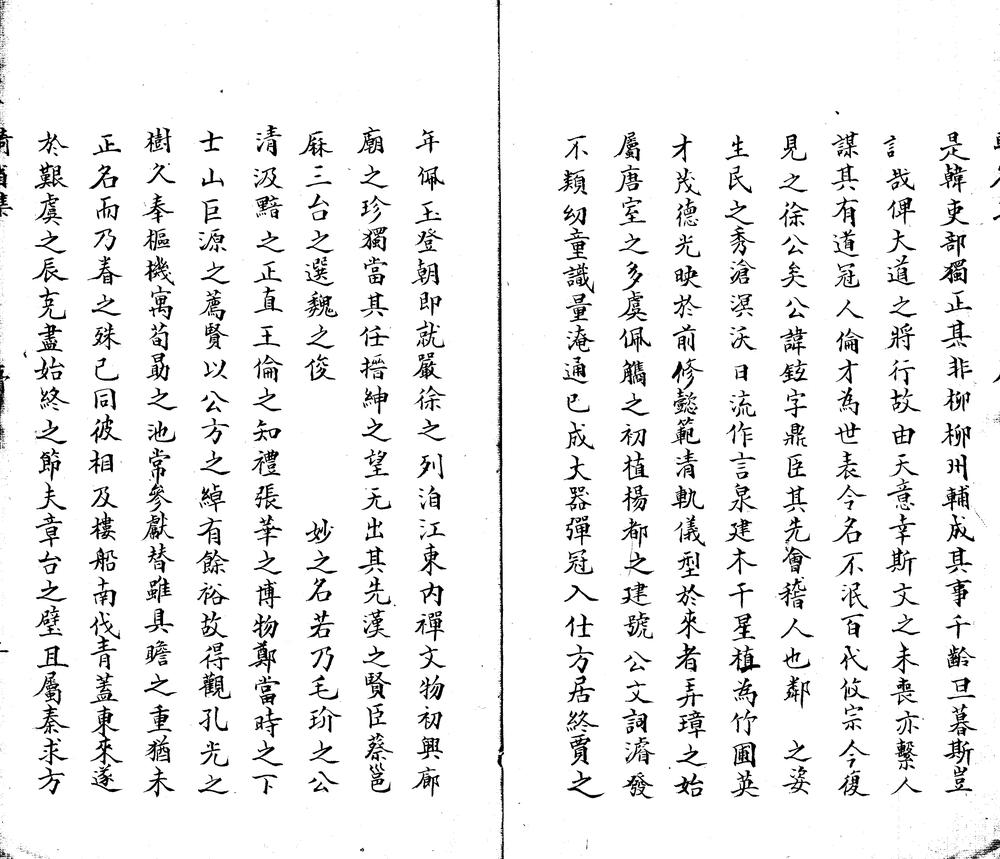 是韓吏部獨正其非柳柳州輔成其事千齡旦暮斯豈
言哉俾大道之將行故由天意幸斯文之未喪亦繫人
謀其有道冠人倫才為世表令名不泯百代攸宗今復
見之徐公矣公諱鉉字鼎臣其先會稽人也鄰 之姿
生民之秀滄溟沃日流作言泉建木干星植為竹圃英
才茂德光映於前修懿範清軌儀型於來者弄璋之始
屬唐室之多虞佩觿之初植楊都之建號公文詞濬發
不類幼童識量淹通已成大器彈冠入仕方居終賈之
年佩玉登朝即就嚴徐之列洎江東内禪文物初興廊
廟之珍獨當其任搢紳之望无出其先漢之賢臣蔡邕
厤三台之選魏之俊 妙之名若乃毛玠之公
清汲黯之正直王倫之知禮張華之博物鄭當時之下
士山巨源之薦賢以公方之綽有餘裕故得觀孔光之
樹久奉樞機寓荀勗之池常參獻替雖具瞻之重猶未
正名而乃眷之殊已同彼相及樓船南伐青蓋東來遂
於艱虞之辰克盡始終之節夫章台之璧且屬秦求方